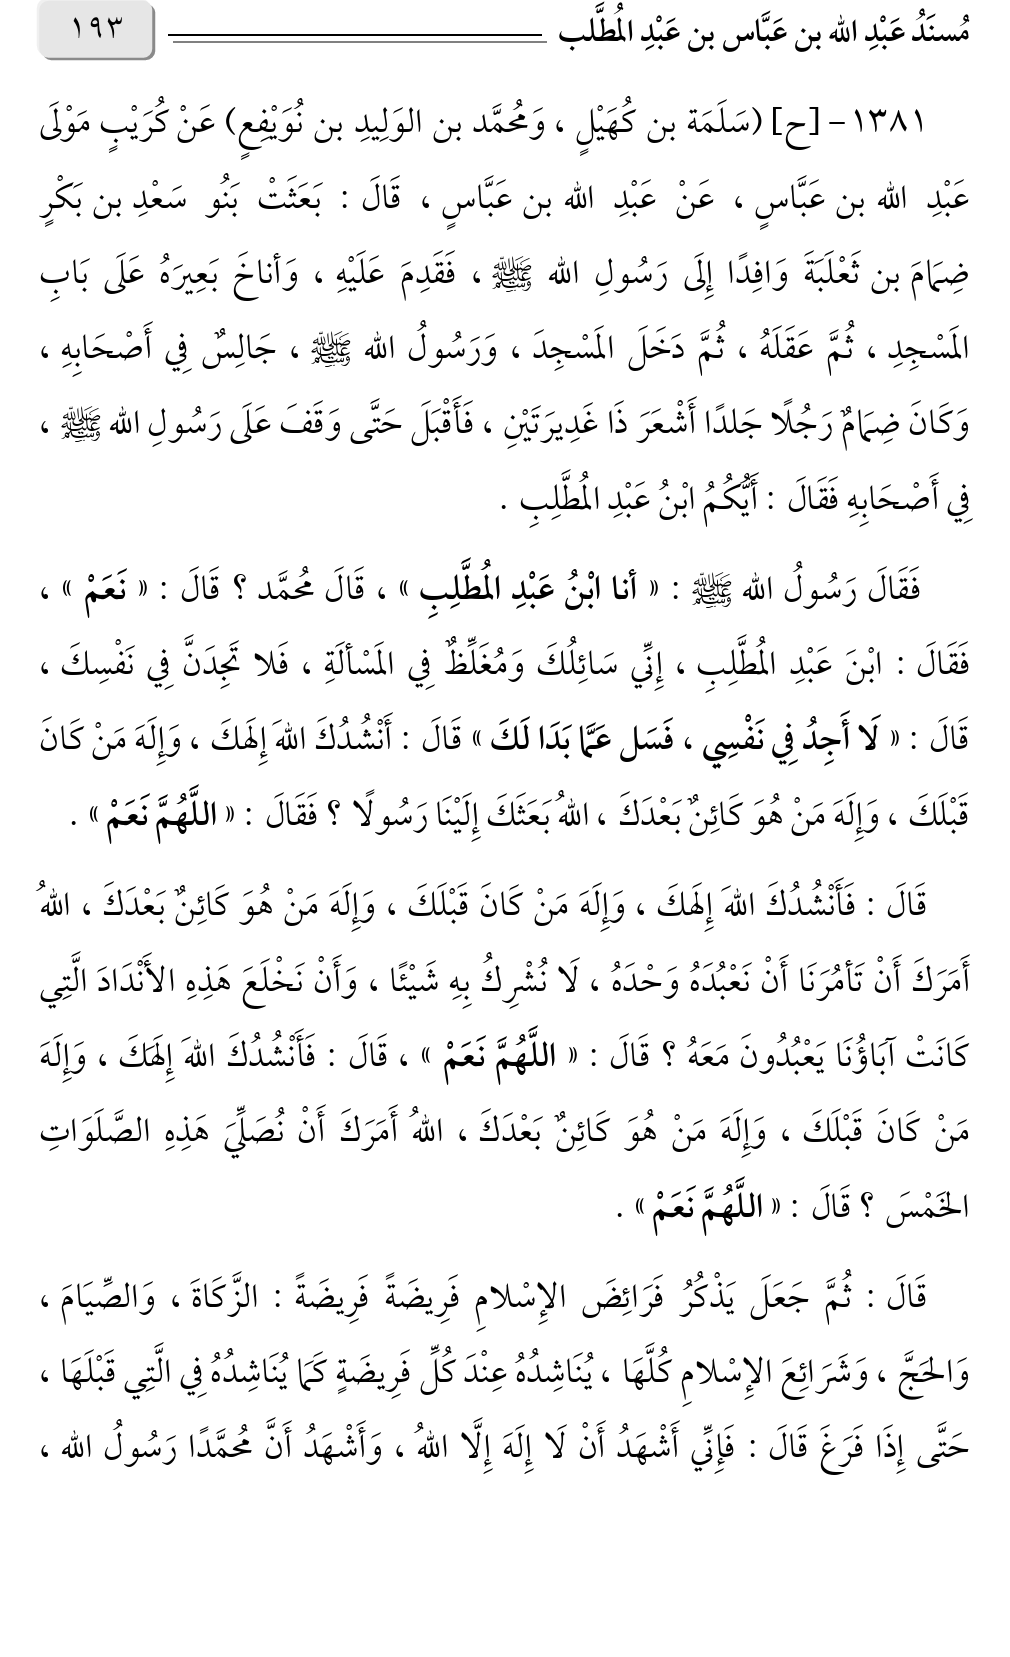 مُسنَدُ عَبْدِ الله بن عَبَّاس بن عَبْدِ المُطَّلب ١٩٣
١٣٨١- [ح] (سَلَمَة بن كُهَيْلٍ ، وَمُحمَّد بن الوَلِيدِ بن نُوَيْفِعٍ) عَنْ كُرَيْبٍ مَوْلَى
عَبْدِ الله بن عَبَّاسٍ ، عَنْ عَبْدِ الله بن عَبَّاسٍ ، قَالَ : بَعَثَتْ بَنُو سَعْدِ بن بَكْرٍ
ضِمَامَ بن ثَعْلَبَةَ وَافِدًا إِلَى رَسُولِ الله ﷺ ، فَقَدِمَ عَلَيْهِ ، وَأناخَ بَعِيرَهُ عَلَى بَابِ
المَسْجِدِ ، ثُمَّ عَقَلَهُ ، ثُمَّ دَخَلَ المَسْجِدَ ، وَرَسُولُ الله ﷺ ، جَالِسٌ فِي أَصْحَابِهِ ،
وَكَانَ ضِمَامٌ رَجُلًا جَلدًا أَشْعَرَ ذَا غَدِيرَتَيْنِ ، فَأَقْبَلَ حَتَّى وَقَفَ عَلَى رَسُولِ الله ﷺ ،
فِي أَصْحَابِهِ فَقَالَ : أَيُّكُمُ ابْنُ عَبْدِ المُطَّلِبِ .
فَقَالَ رَسُولُ الله ﷺ : « أنا ابْنُ عَبْدِ المُطَّلِبِ » ، قَالَ مُحمَّد ؟ قَالَ : « نَعَمْ » ،
فَقَالَ : ابْنَ عَبْدِ المُطَّلِبِ ، إِنِّي سَائِلُكَ وَمُغَلِّظٌ فِي المَسْألَةِ ، فَلا تَجِدَنَّ فِي نَفْسِكَ ،
قَالَ : « لَا أَجِدُ فِي نَفْسِي ، فَسَل عَمَّا بَدَا لَكَ » قَالَ : أَنْشُدُكَ اللهَ إِلَهكَ ، وَإِلَهَ مَنْ كَانَ
قَبْلَكَ ، وَإِلَهَ مَنْ هُوَ كَائِنٌ بَعْدَكَ ، اللهُ بَعَثَكَ إِلَيْنَا رَسُولًا ؟ فَقَالَ : « اللَّهُمَّ نَعَمْ » .
قَالَ : فَأَنْشُدُكَ اللهَ إِلَهكَ ، وَإِلَهَ مَنْ كَانَ قَبْلَكَ ، وَإِلَهَ مَنْ هُوَ كَائِنٌ بَعْدَكَ ، اللهُ
أَمَرَكَ أَنْ تَأمُرَنَا أَنْ نَعْبُدَهُ وَحْدَهُ ، لَا نُشْرِكُ بِهِ شَيْئًا ، وَأَنْ نَخْلَعَ هَذِهِ الأَنْدَادَ الَّتِي
كَانَتْ آبَاؤُنَا يَعْبُدُونَ مَعَهُ ؟ قَالَ : « اللَّهُمَّ نَعَمْ » ، قَالَ : فَأَنْشُدُكَ اللهَ إِلَهَكَ ، وَإِلَهَ
مَنْ كَانَ قَبْلَكَ ، وَإِلَهَ مَنْ هُوَ كَائِنٌ بَعْدَكَ ، اللهُ أَمَرَكَ أَنْ نُصَلِّيَ هَذِهِ الصَّلَوَاتِ
الخَمْسَ ؟ قَالَ : « اللَّهُمَّ نَعَمْ » .
قَالَ : ثُمَّ جَعَلَ يَذْكُرُ فَرَائِضَ الإِسْلامِ فَرِيضَةً فَرِيضَةً : الزَّكَاةَ ، وَالصِّيَامَ ،
وَالحَجَّ ، وَشَرَائِعَ الإِسْلامِ كُلَّهَا ، يُنَاشِدُهُ عِنْدَ كُلِّ فَرِيضَةٍ كَمَا يُنَاشِدُهُ فِي الَّتِي قَبْلَهَا ،
حَتَّى إِذَا فَرَغَ قَالَ : فَإِنِّي أَشْهَدُ أَنْ لَا إِلَهَ إِلَّا اللهُ ، وَأَشْهَدُ أَنَّ مُحمَّدًا رَسُولُ الله ،